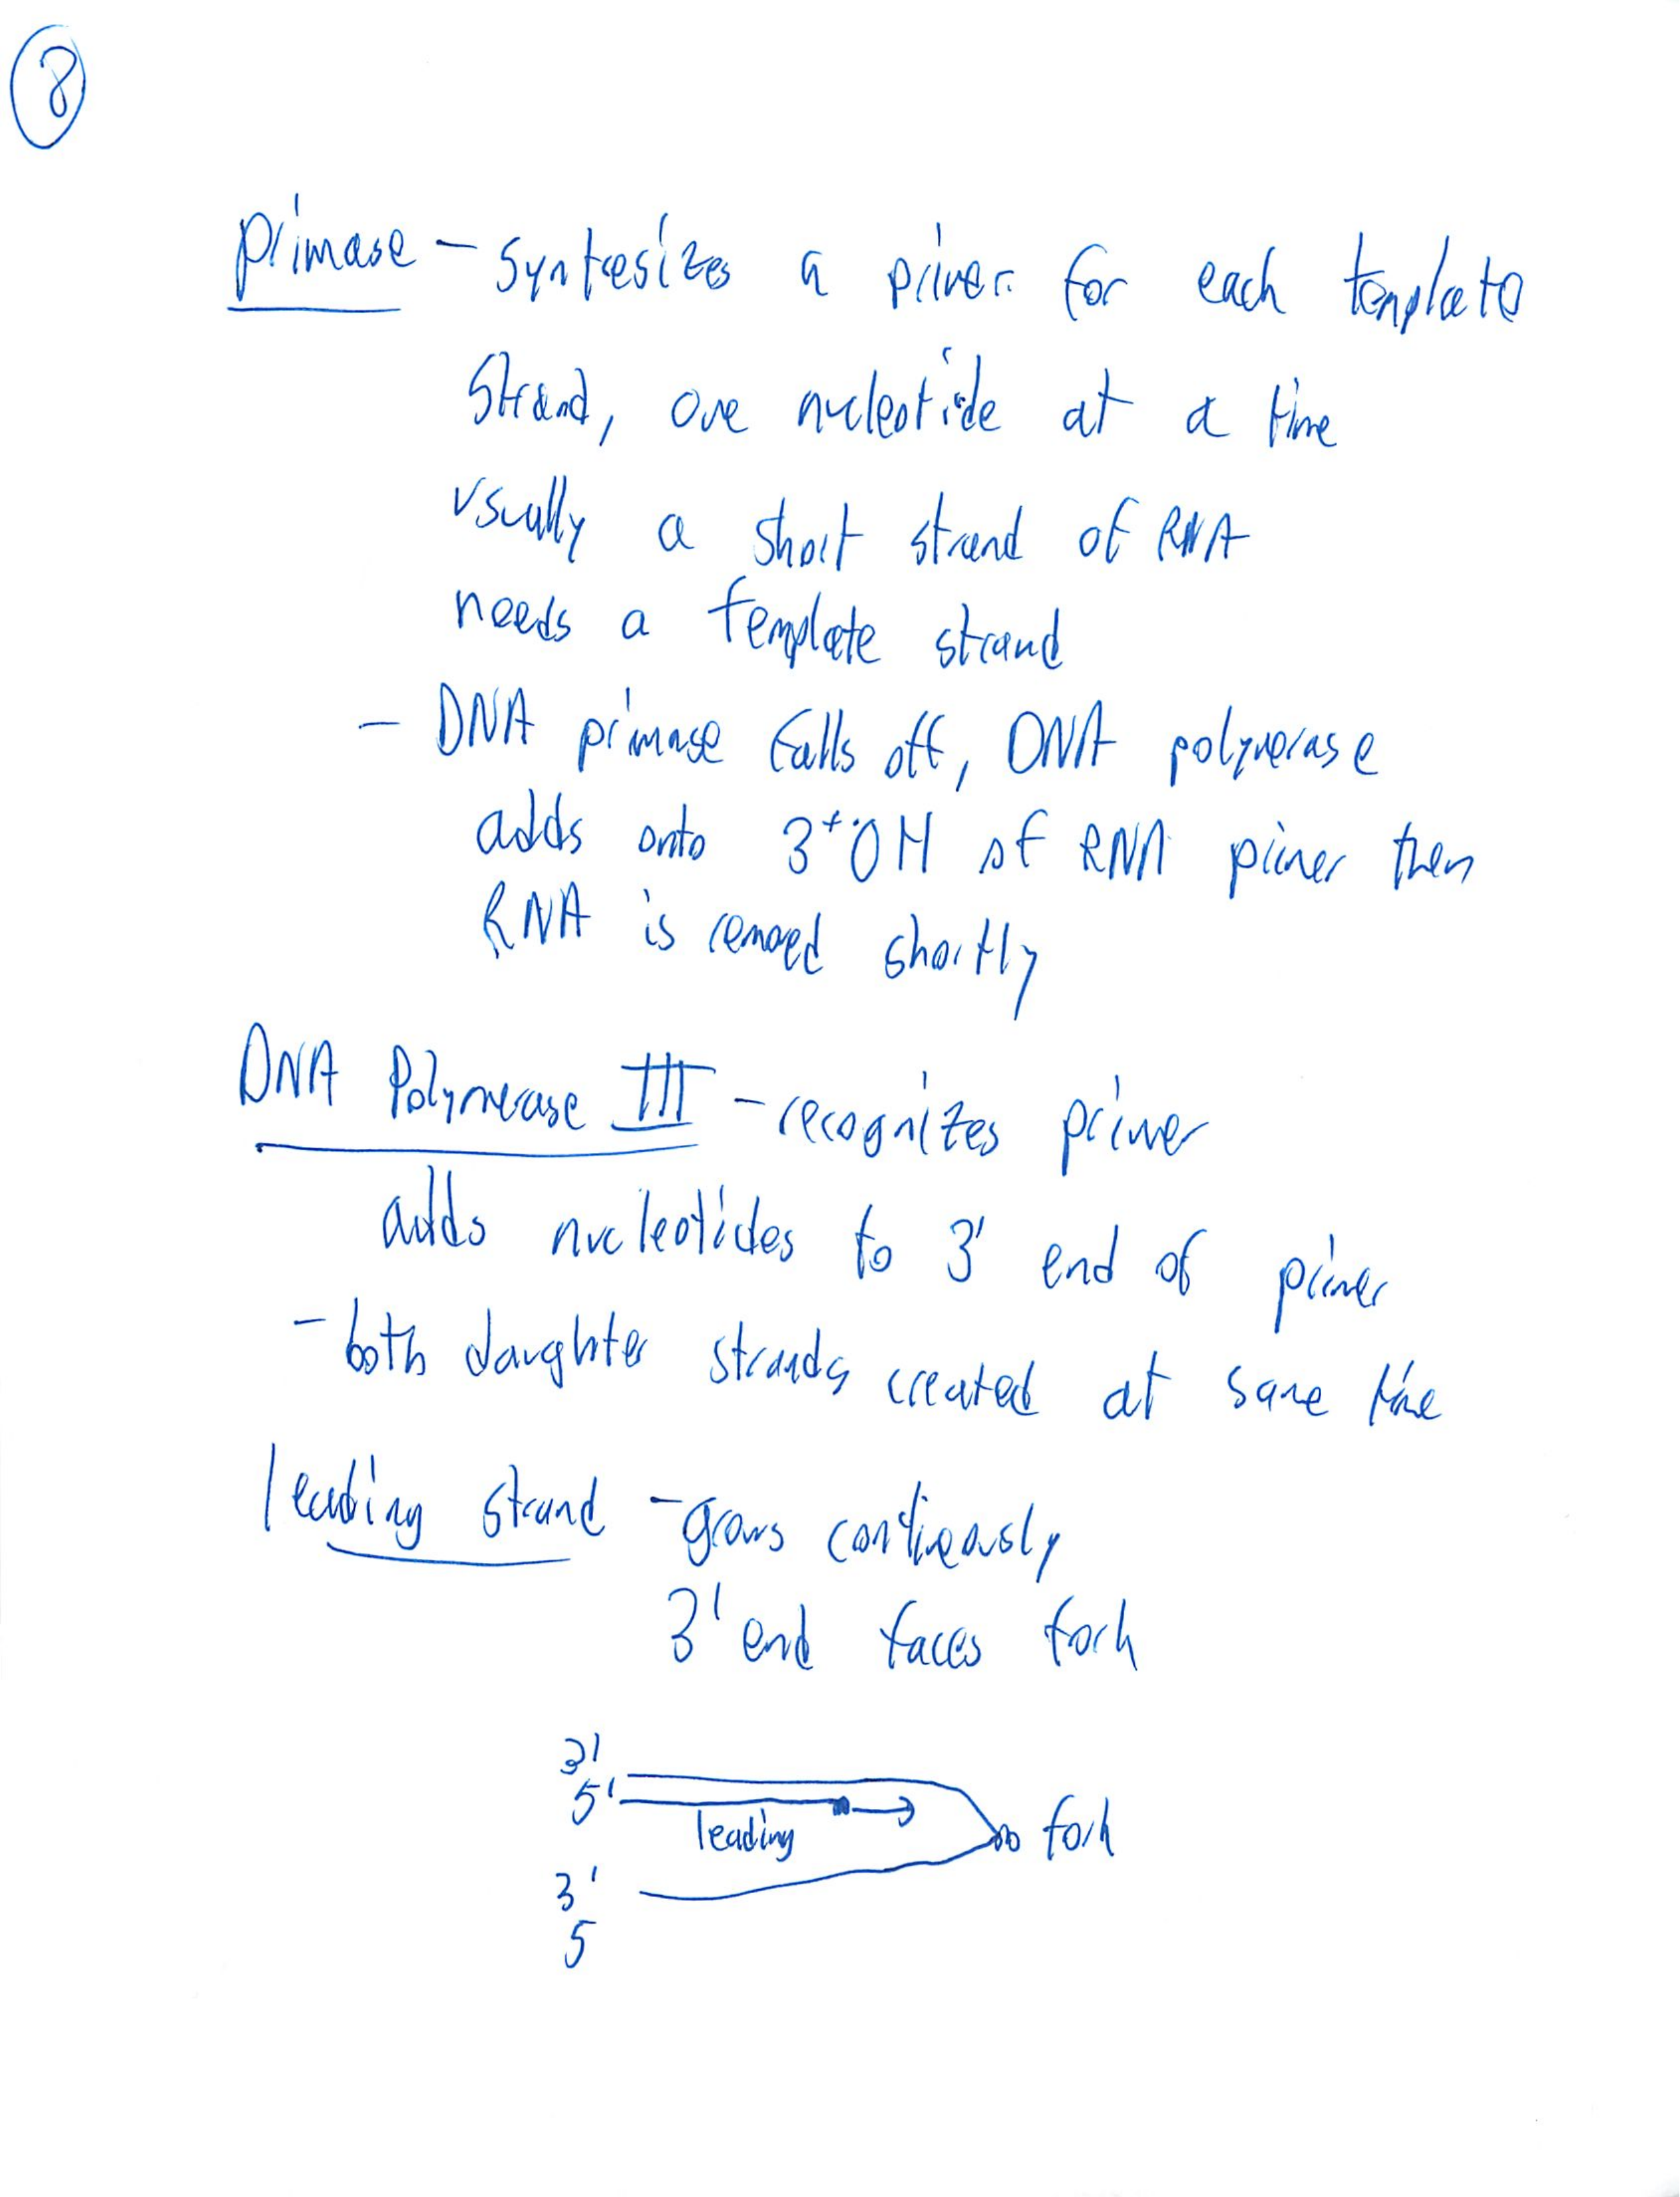 8
primase - syntesizes a primer for each template
strand, one nucleotide at a time
usually a short strand of RNA
needs a template strand
- DNA primase falls off, DNA polymerase
adds onto 3' OH of RNA primer then
RNA is removed shortly
DNA Polymerase III - recognizes primer
adds nucleotides to 3' end of primer
- both daughter strands created at same time
leading strand - grows contineously
3' end faces fork
3'
5'
leading
fork
3'
5